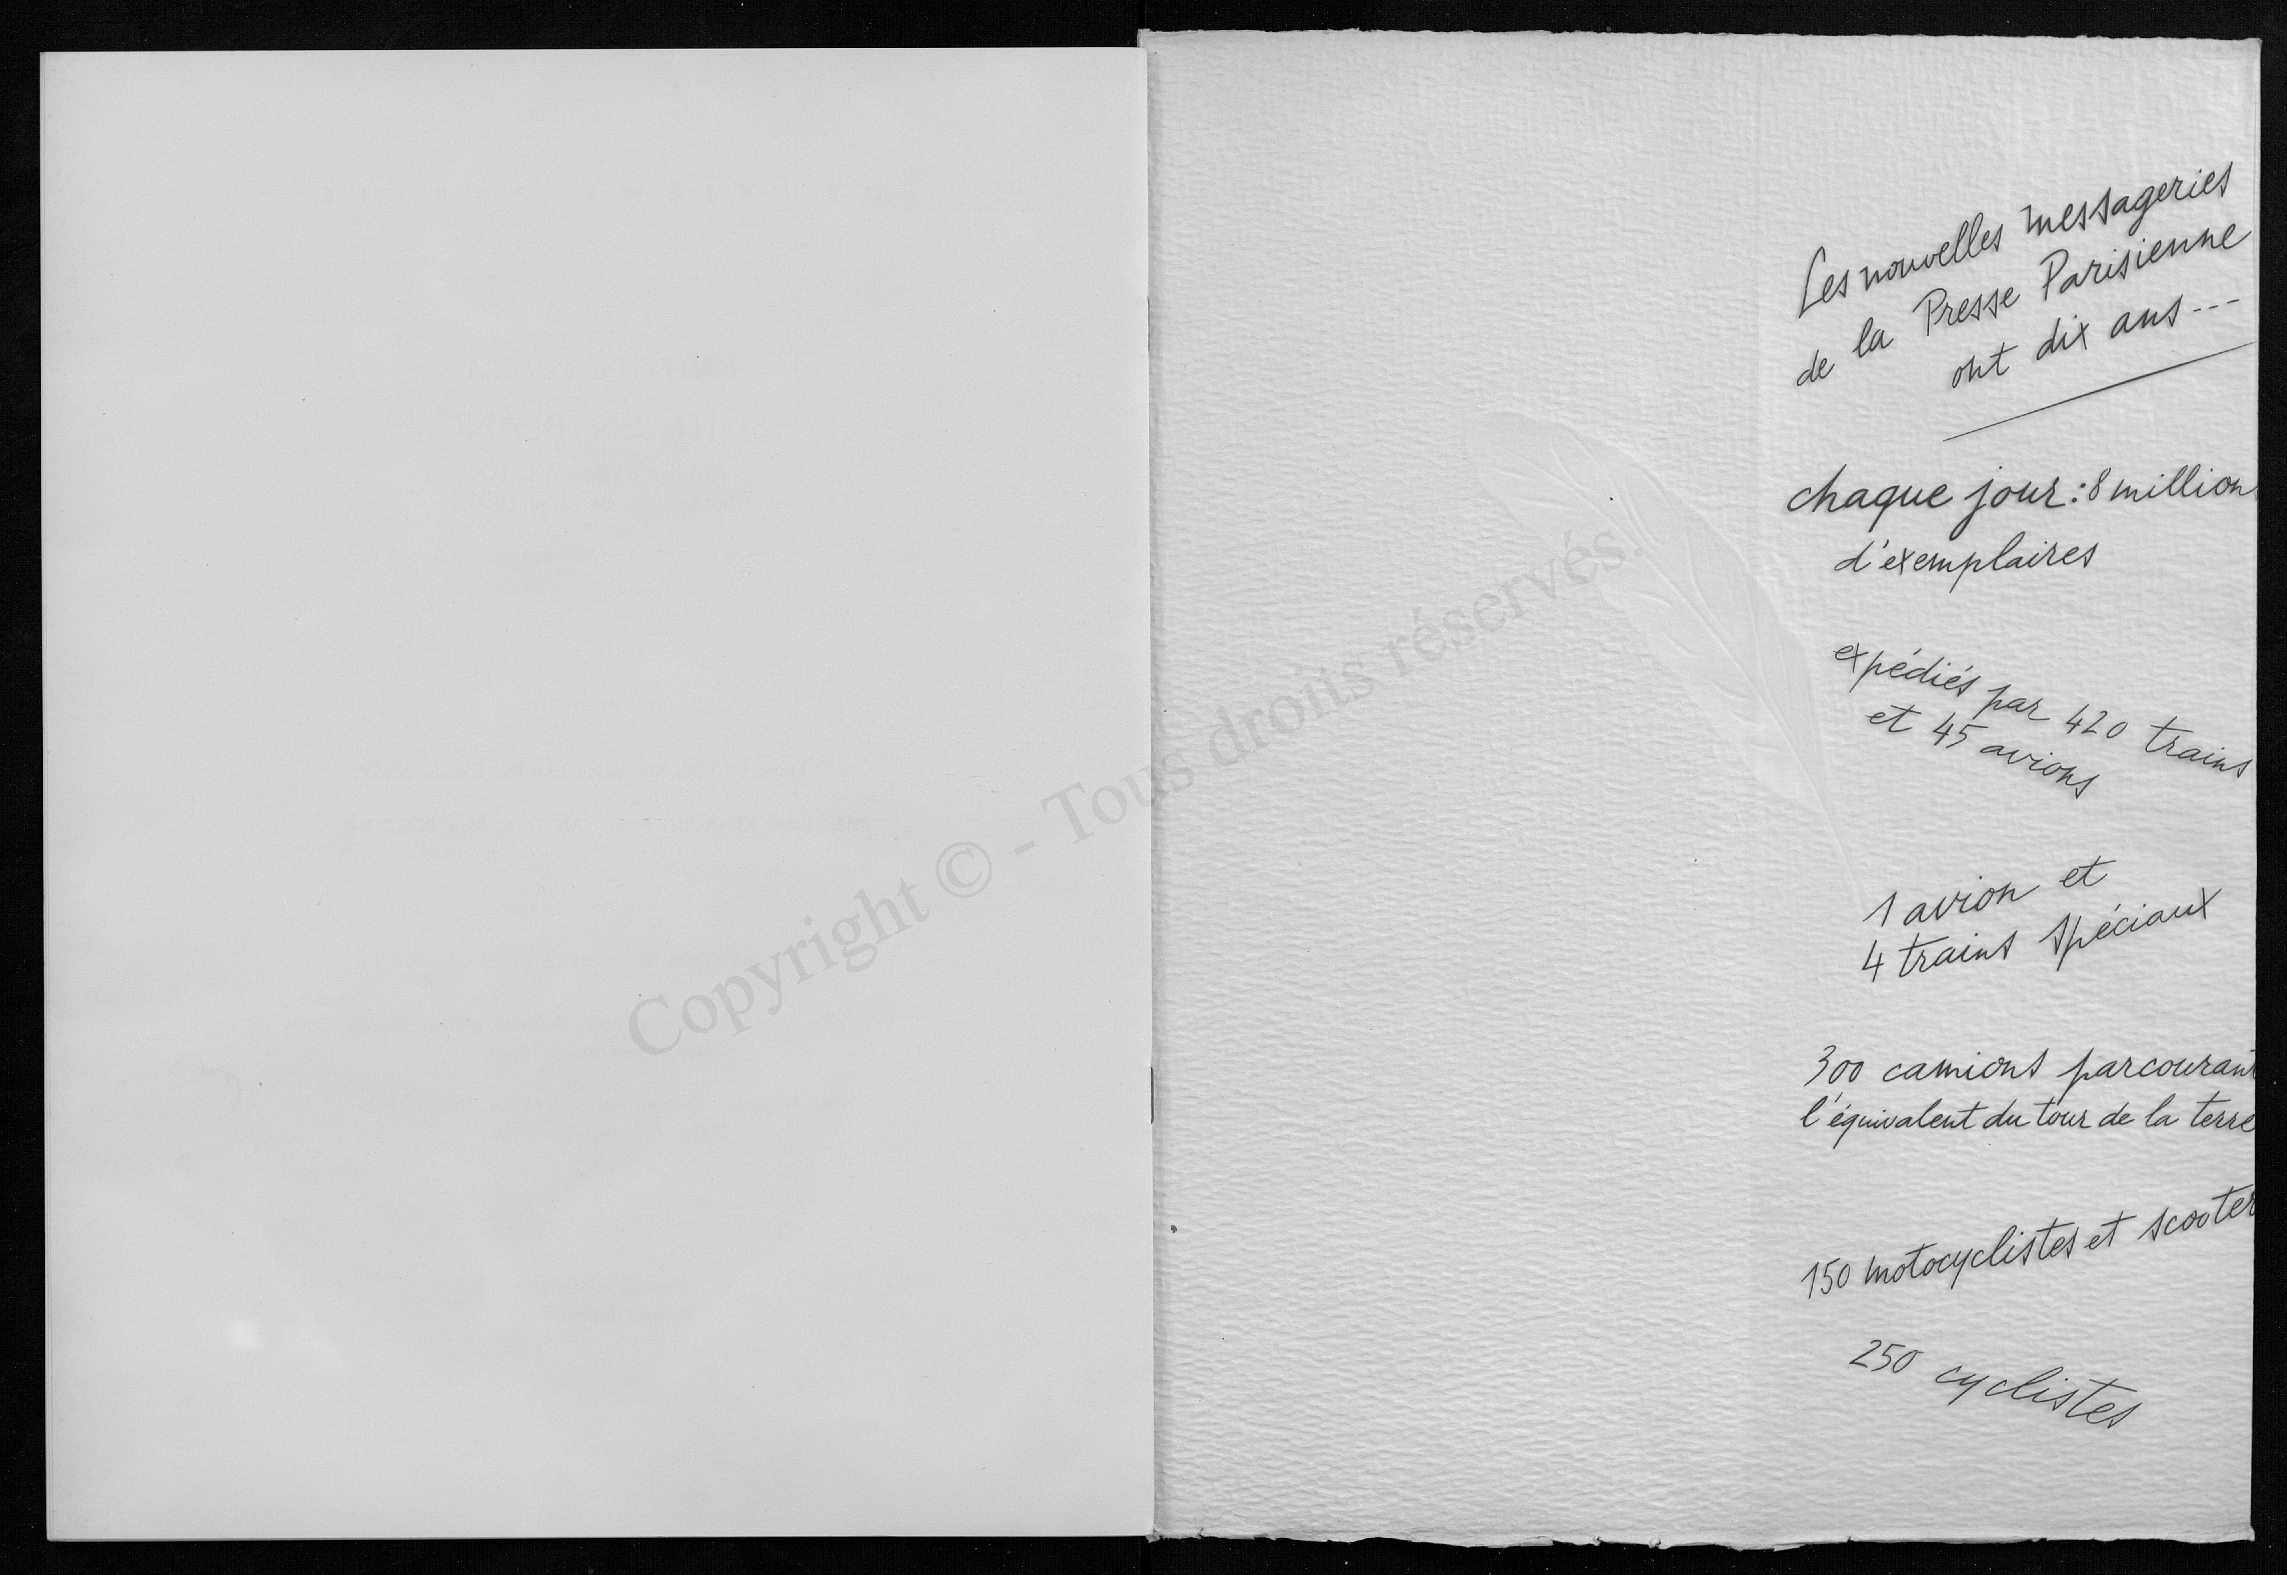 Les nouvelles messageries
de la Presse Parisienne
ont dix ans---
chaque jour : 8 million
d'exemplaires
expédiés par 420 trains
et 45 avions
1 avion et
4 trains spéciaux
300 camions parcourant
l'équivalent du tour de la terre
150 motocyclistes et scooter
250 cyclistes
Copyright © - Tous droits réservés.